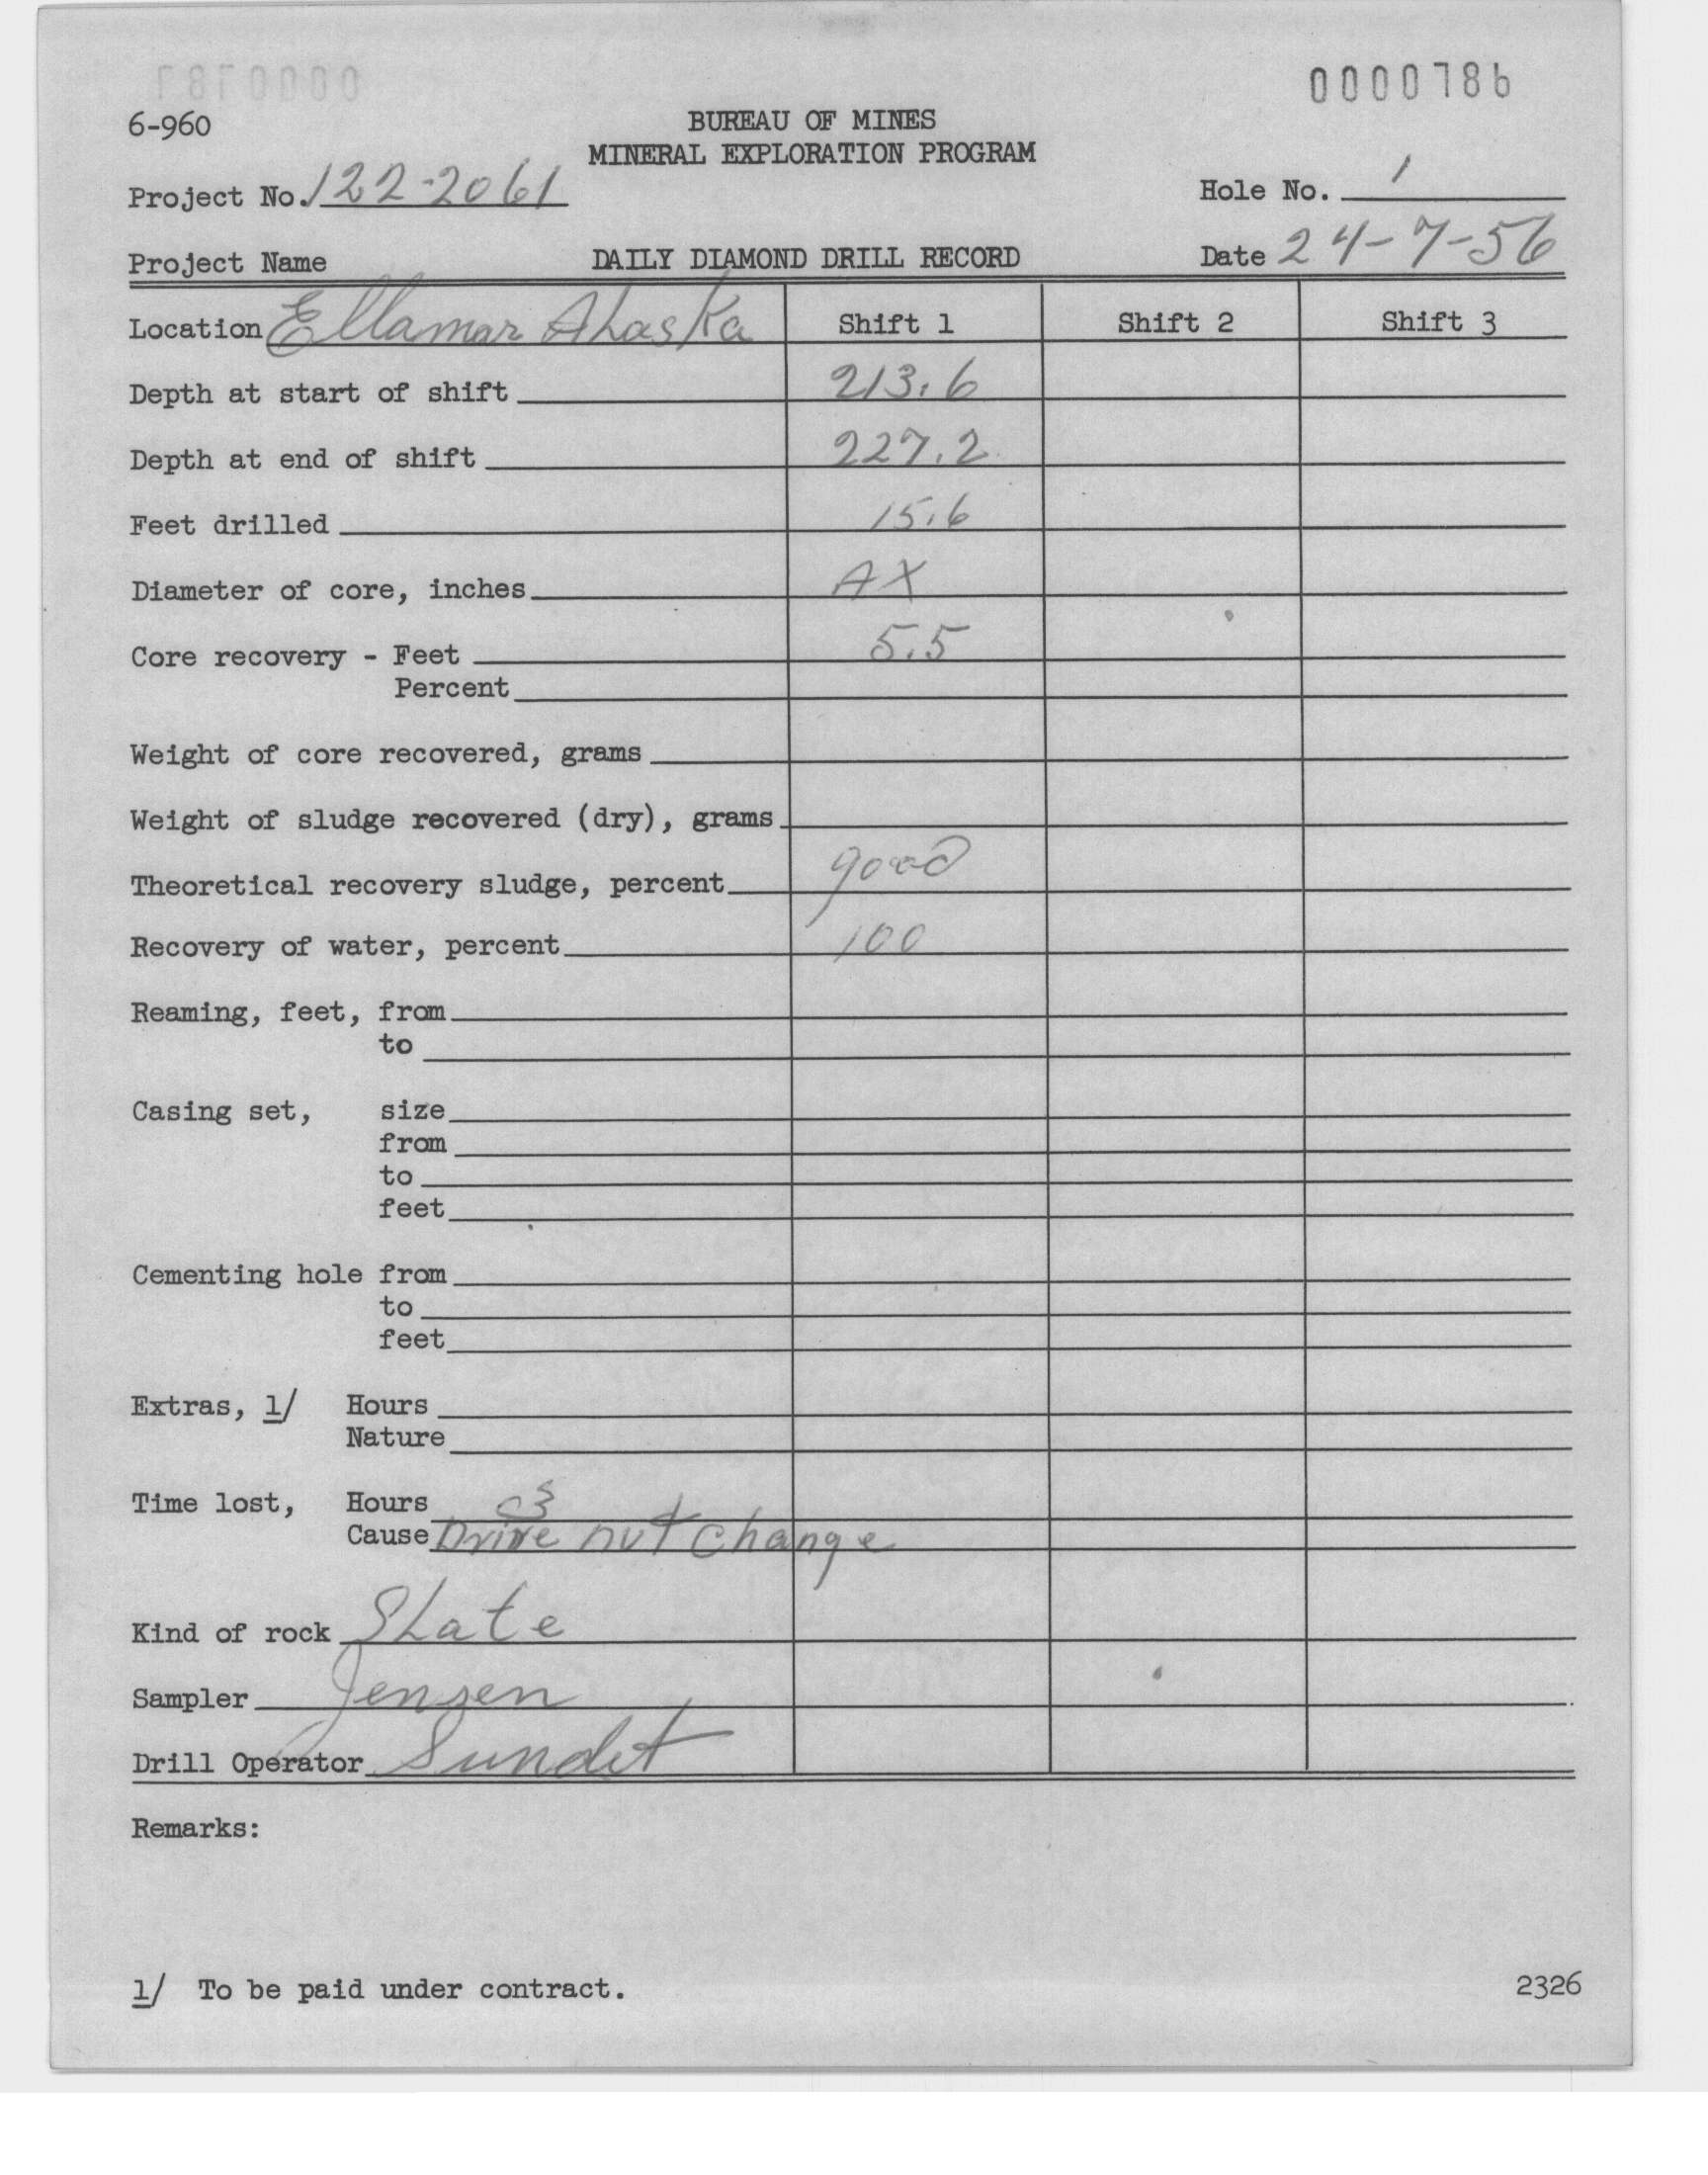 0000786
6-960
BUREAU OF MINES
MINERAL EXPLORATION PROGRAM
Project No. 122-2061
Hole No. 1
Project Name
DAILY DIAMOND DRILL RECORD
Date 24-7-56
Location Ellamar Alaska Shift 1 Shift 2 Shift 3
Depth at start of shift 213.6
Depth at end of shift 227.2
Feet drilled 15.6
Diameter of core, inches AX
Core recovery - Feet 5.5
Percent
Weight of core recovered, grams
Weight of sludge recovered (dry), grams
Theoretical recovery sludge, percent good
Recovery of water, percent 100
Reaming, feet, from
to
Casing set, size
from
to
feet
Cementing hole from
to
feet
Extras, 1/ Hours
Nature
Time lost, Hours
Cause Drive nut change
Kind of rock Slate
Sampler Jensen
Drill Operator Sundet
Remarks:
1/ To be paid under contract.
2326